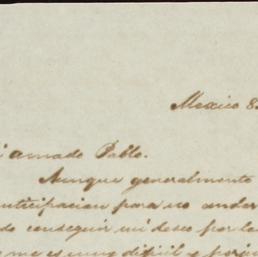 Mexico 8
i amado Pablo.
Aunque generalmente
anticipacion para no ander
do conseguir mi deseo por la
me es muy dificil